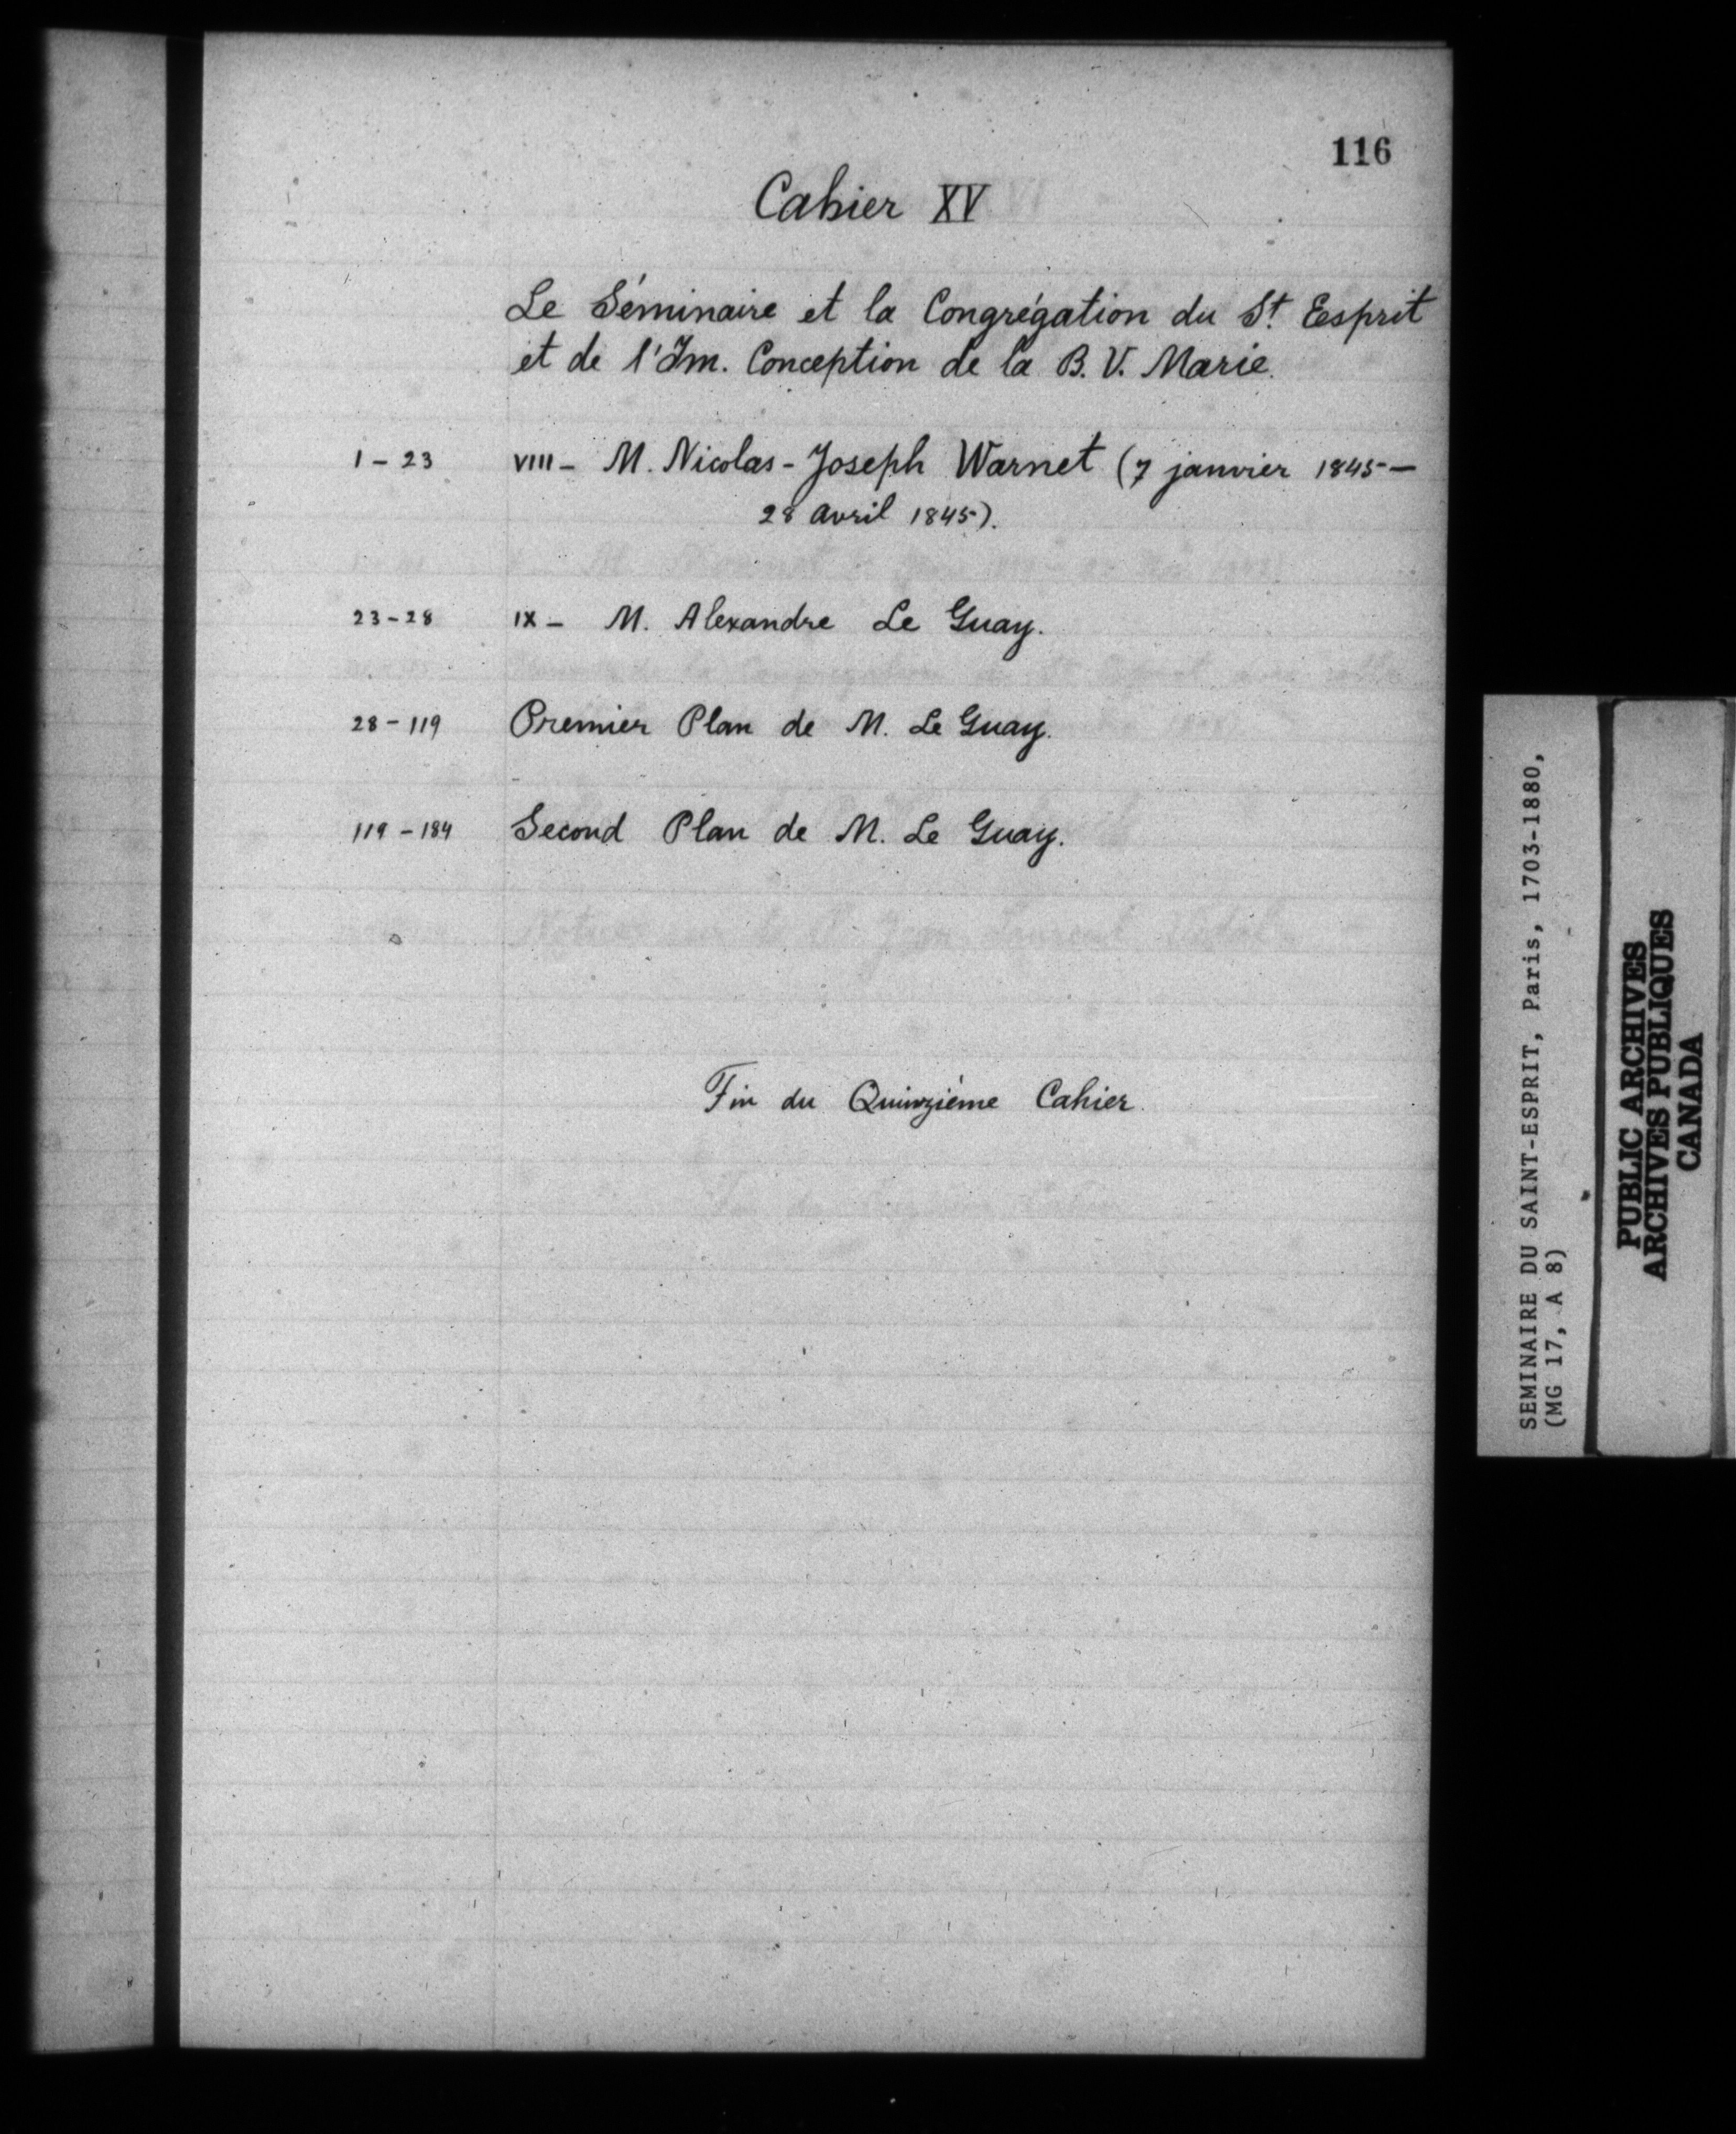 116
Cahier XV
Le Séminaire et la Congrégation du St. Eesprit
et de l'Im. Conception de la B. V. Marie.
1 - 23 VIII - M. Nicolas - Joseph Warnet (7 janvier 1845 -
28 avril 1845).
23 - 28 IX - M. Alexandre Le Guay.
28 - 119 Premier Plan de M. Le Guay.
119 - 184 Second Plan de M. Le Guay.
Fin du Quinzième Cahier.
SEMINAIRE DU SAINT-ESPRIT, Paris, 1703-1880,
(MG 17, A 8)
PUBLIC ARCHIVES
ARCHIVES PUBLIQUES
CANADA